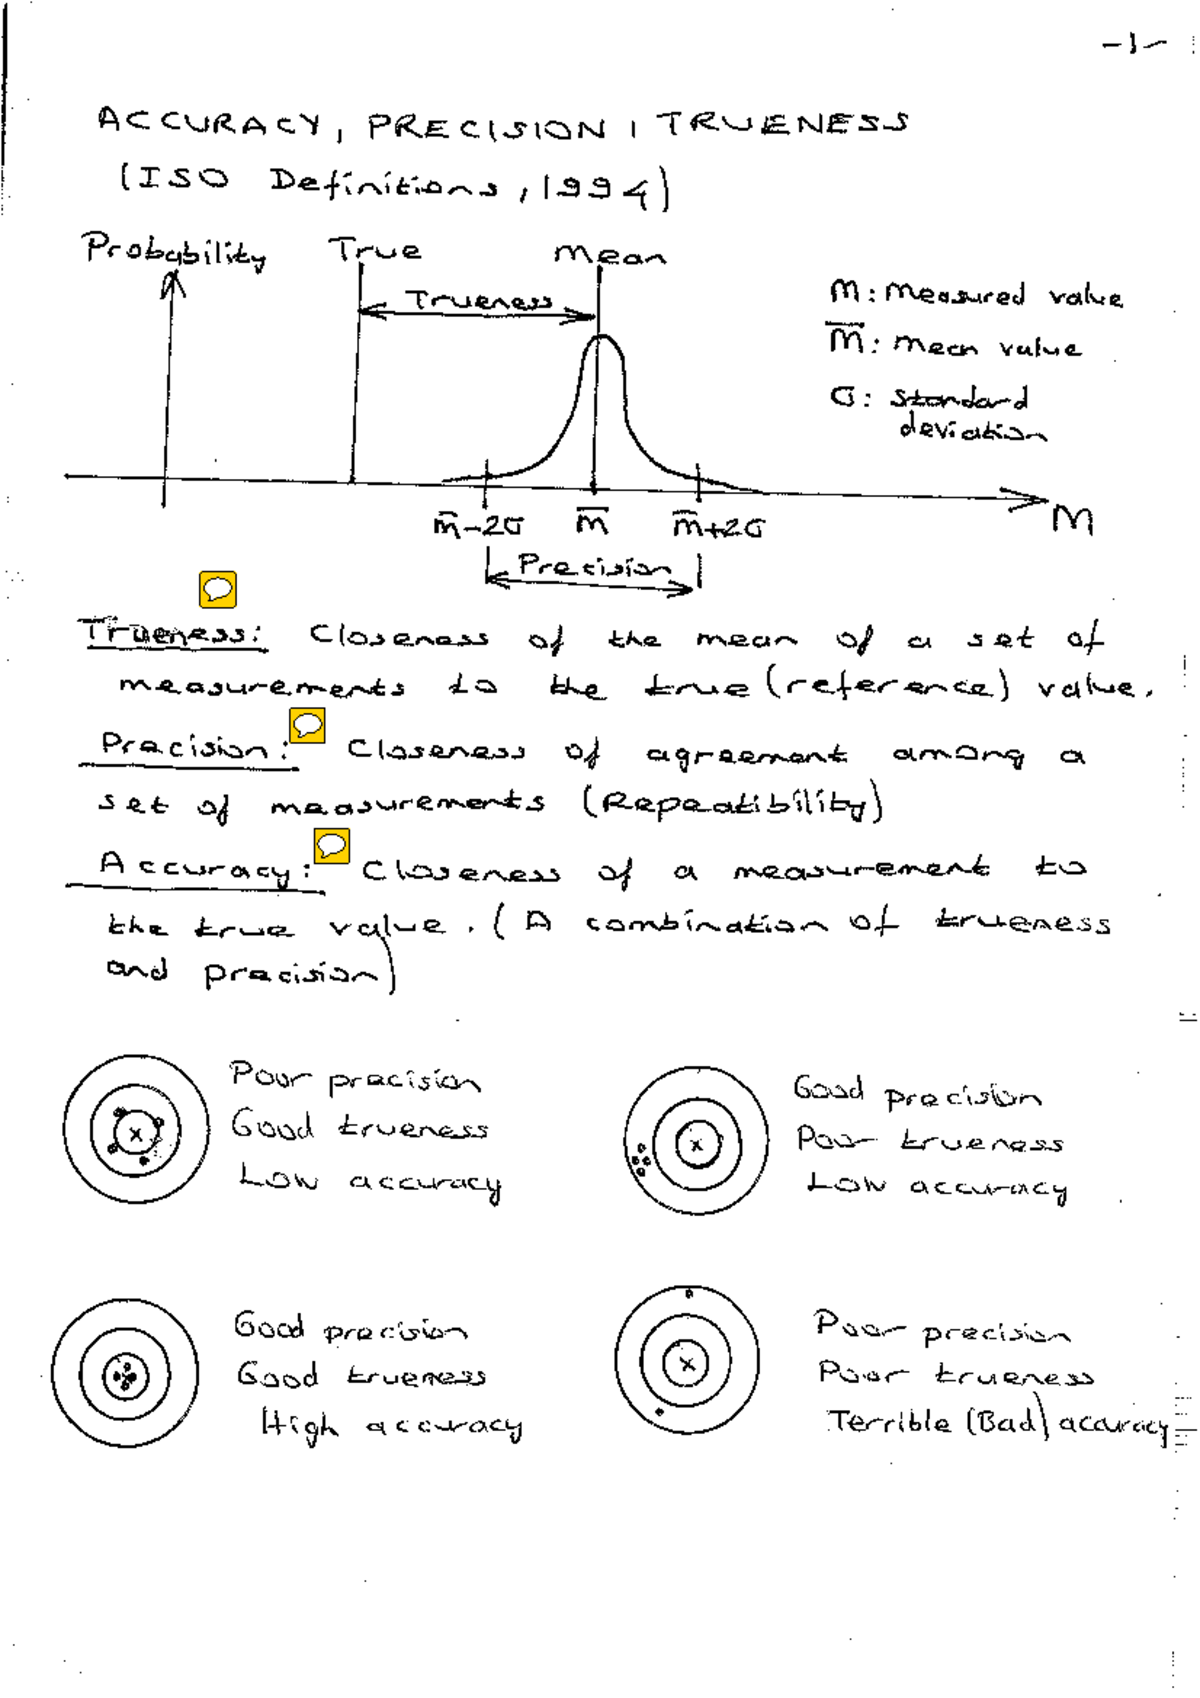 -1-
ACCURACY, PRECISION, TRUENESS
(ISO Definitions, 1994)
Probability
True
Mean
Trueness
M: Measured value
M̅: Mean value
σ: Standard
deviation
M̅-2σ
M̅
M̅+2σ
M
Precision
Trueness: Closeness of the mean of a set of
measurements to the true (reference) value.
Precision: Closeness of agreement among a
set of measurements (Repeatibility)
Accuracy: Closeness of a measurement to
the true value. (A combination of trueness
and precision)
Poor precision
Good trueness
Low accuracy
Good precision
Poor trueness
Low accuracy
Good precision
Good trueness
High accuracy
Poor precision
Poor trueness
Terrible (Bad) accuracy